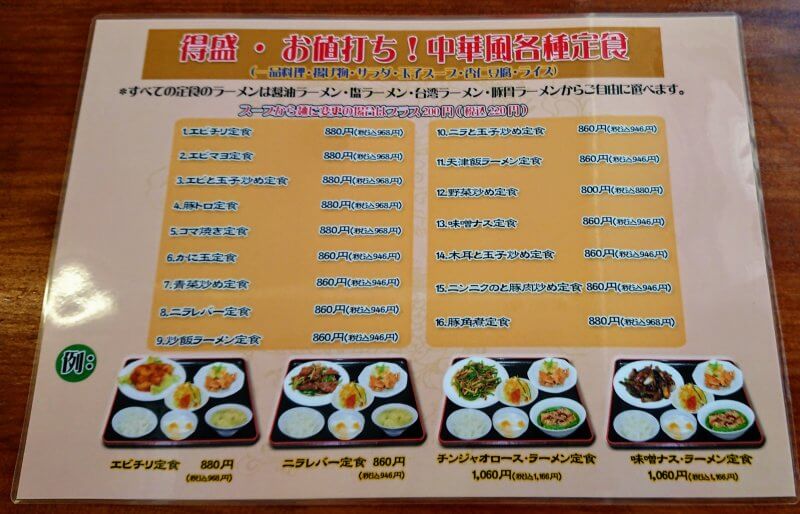 得盛・お値打ち!中華風各種定食
(一品料理・揚げ物・サラダ・玉子スープ・杏仁豆腐・ライス)
*すべての定食のラーメンは醤油ラーメン・塩ラーメン・台湾ラーメン・豚骨ラーメンからご自由に選べます。
スープから麺に変更の場合はプラス200円(税込220円)
1.エビチリ定食 880円(税込968円)
2.エビマヨ定食 880円(税込968円)
3.エビと玉子炒め定食 880円(税込968円)
4.豚トロ定食 880円(税込968円)
5.コマ焼き定食 880円(税込968円)
6.かに玉定食 860円(税込946円)
7.青菜炒め定食 860円(税込946円)
8.ニラレバー定食 860円(税込946円)
9.炒飯ラーメン定食 860円(税込946円)
10.ニラと玉子炒め定食 860円(税込946円)
11.天津飯ラーメン定食 860円(税込946円)
12.野菜炒め定食 800円(税込880円)
13.味噌ナス定食 860円(税込946円)
14.木耳と玉子炒め定食 860円(税込946円)
15.ニンニクのと豚肉炒め定食 860円(税込946円)
16.豚角煮定食 880円(税込968円)
例:
エビチリ定食 880円
(税込968円)
ニラレバー定食 860円
(税込946円)
チンジャオロース・ラーメン定食
1,060円(税込1,166円)
味噌ナス・ラーメン定食
1,060円(税込1,166円)